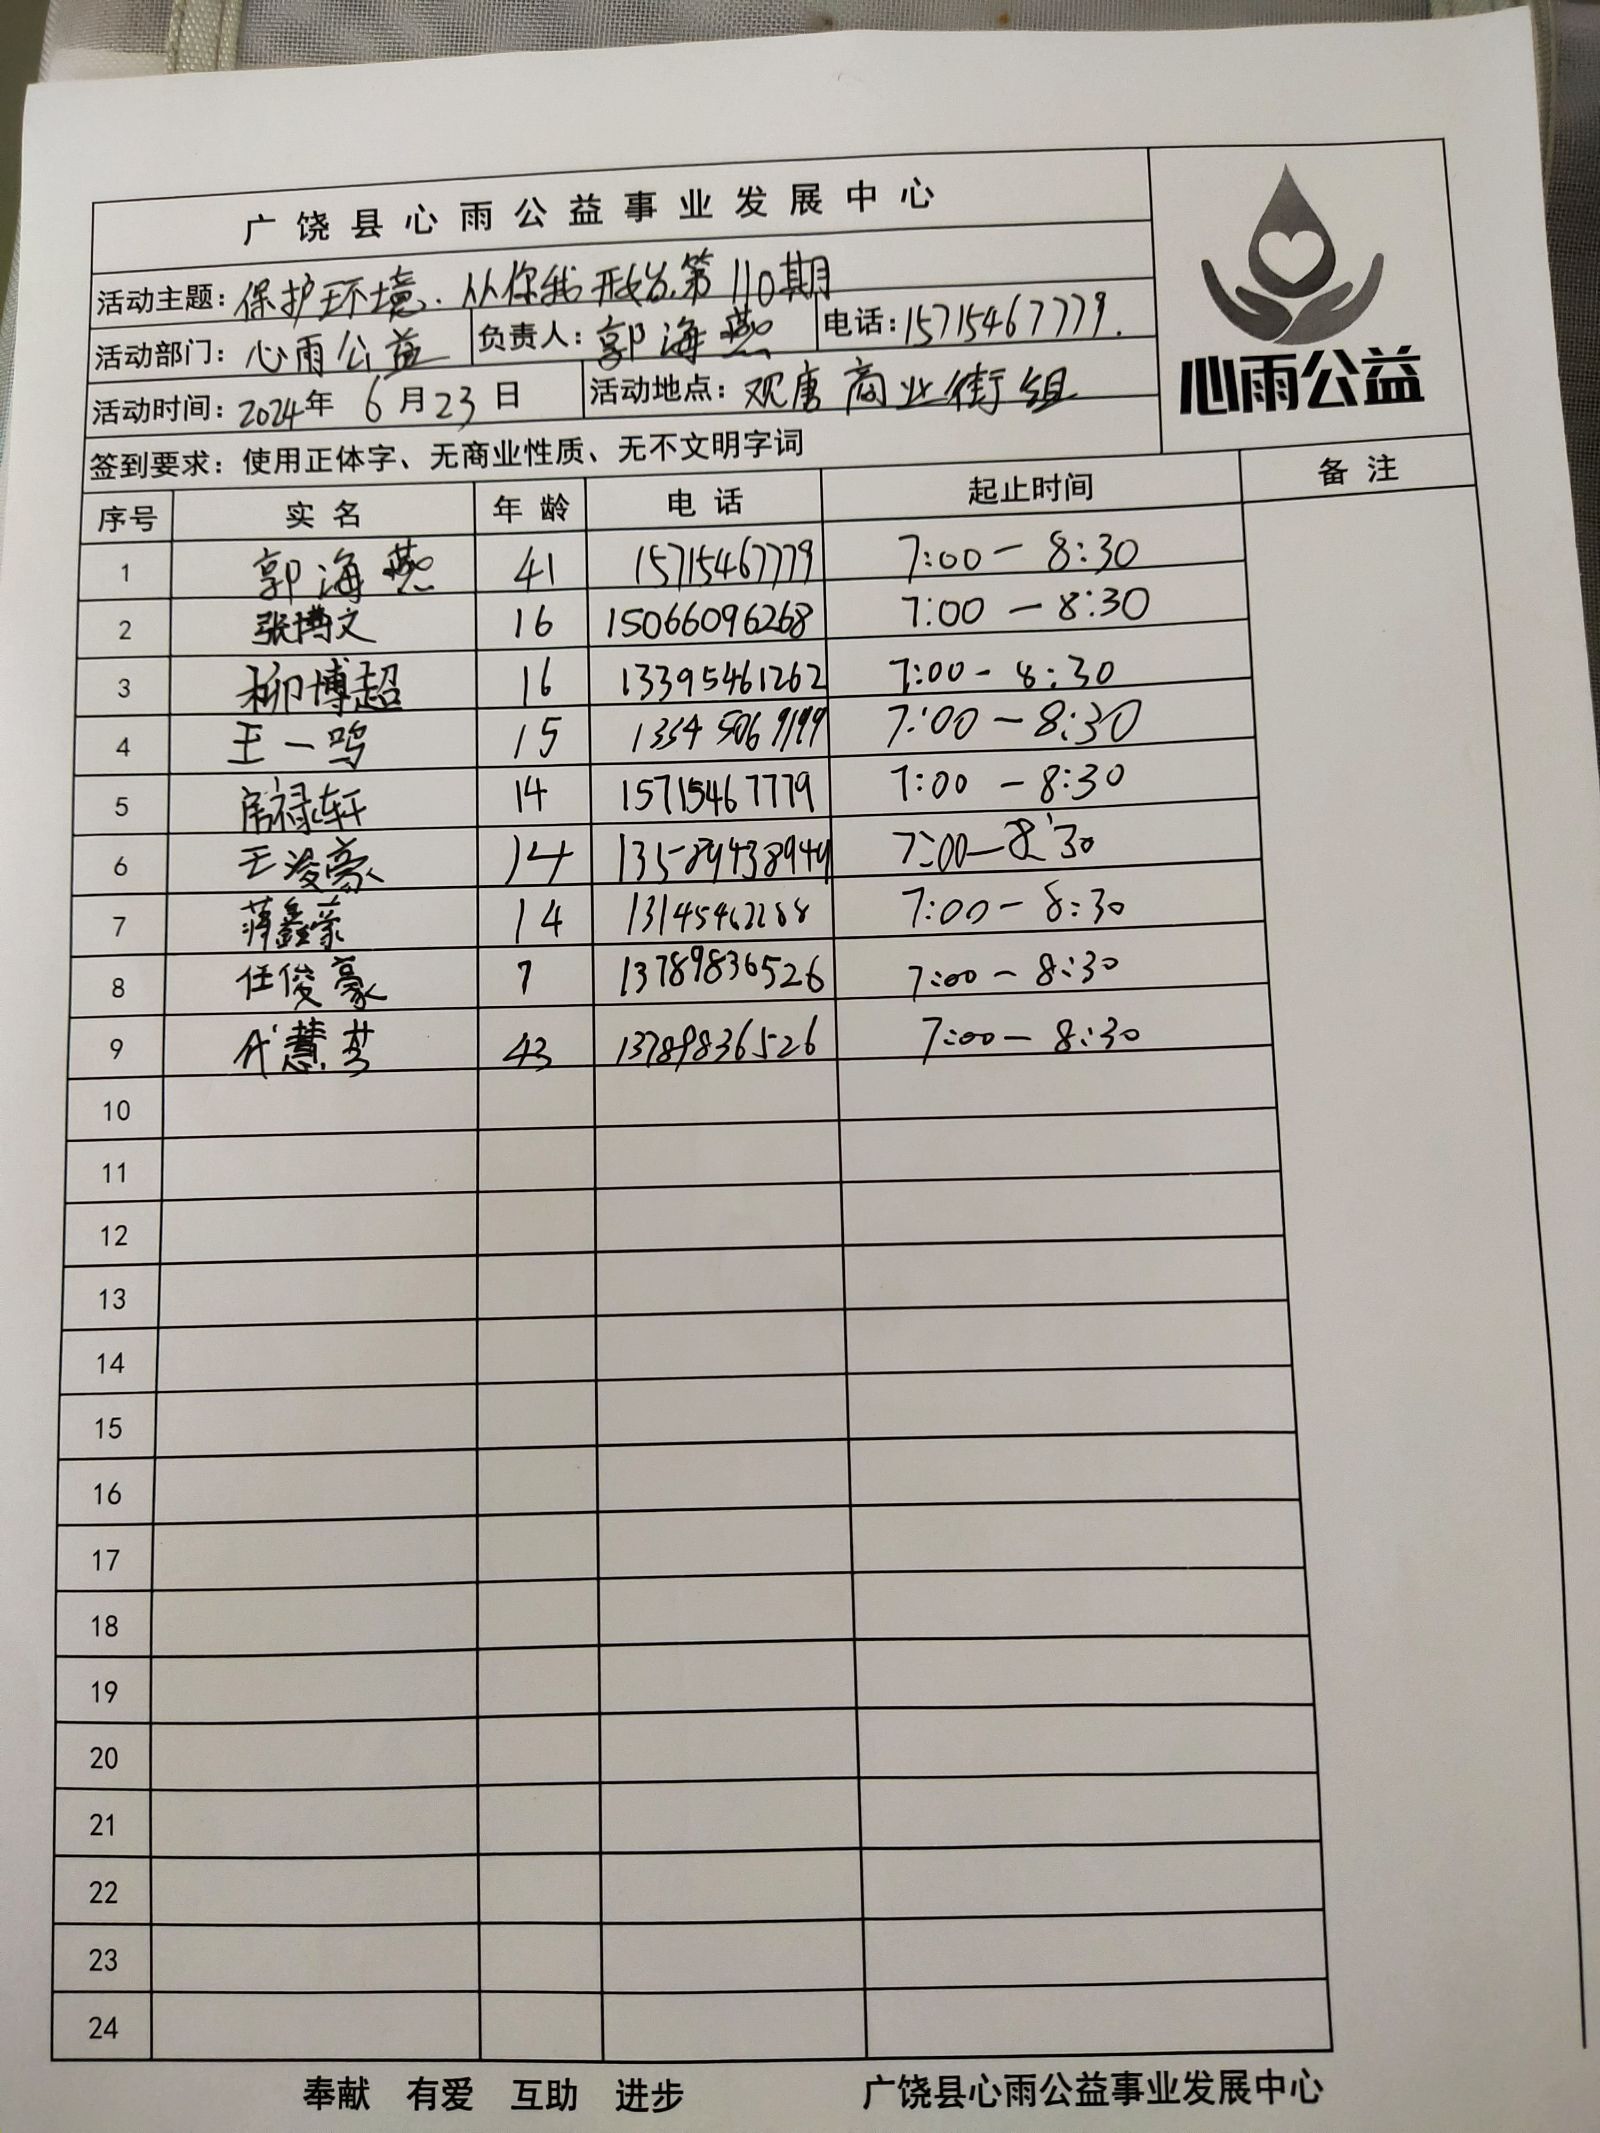 广饶县心雨公益事业发展中心
活动主题：保护环境、从你我开始第110期
活动部门：心雨公益 负责人：郭海燕 电话：15715467779.
活动时间：2024年 6月23日 活动地点：观唐商业街组
心雨公益
签到要求：使用正体字、无商业性质、无不文明字词
序号 实名 年龄 电话 起止时间 备注
1 郭海燕 41 15715467779 7:00-8:30
2 张博文 16 15066096268 7:00-8:30
3 柳博超 16 13395461262 7:00-8:30
4 王一鸣 15 7:00-8:30
5 禄轩 14 15715467779 7:00-8:30
6 王浚豪 14 13589438949 7:00-8:30
7 蒋鑫蒙 14 7:00-8:30
8 任俊豪 7 13789836526 7:00-8:30
9 代慧芳 43 13789836526 7:00-8:30
10
11
12
13
14
15
16
17
18
19
20
21
22
23
24
奉献 有爱 互助 进步 广饶县心雨公益事业发展中心